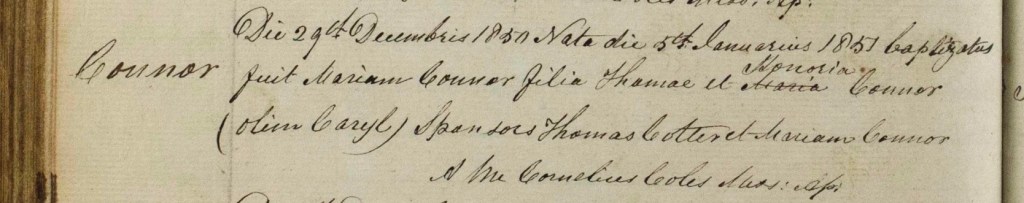 Die 29th Decembris 1850 Nata die 5th Januarius 1851 baptizatus
Connor
fuit Mariam Connor filia Thomae et Honoria Maria Connor
(olim Caryl) Sponsors Thomas Cotter et Mariam Connor
A Me Cornelius Coles Miss: Ap: